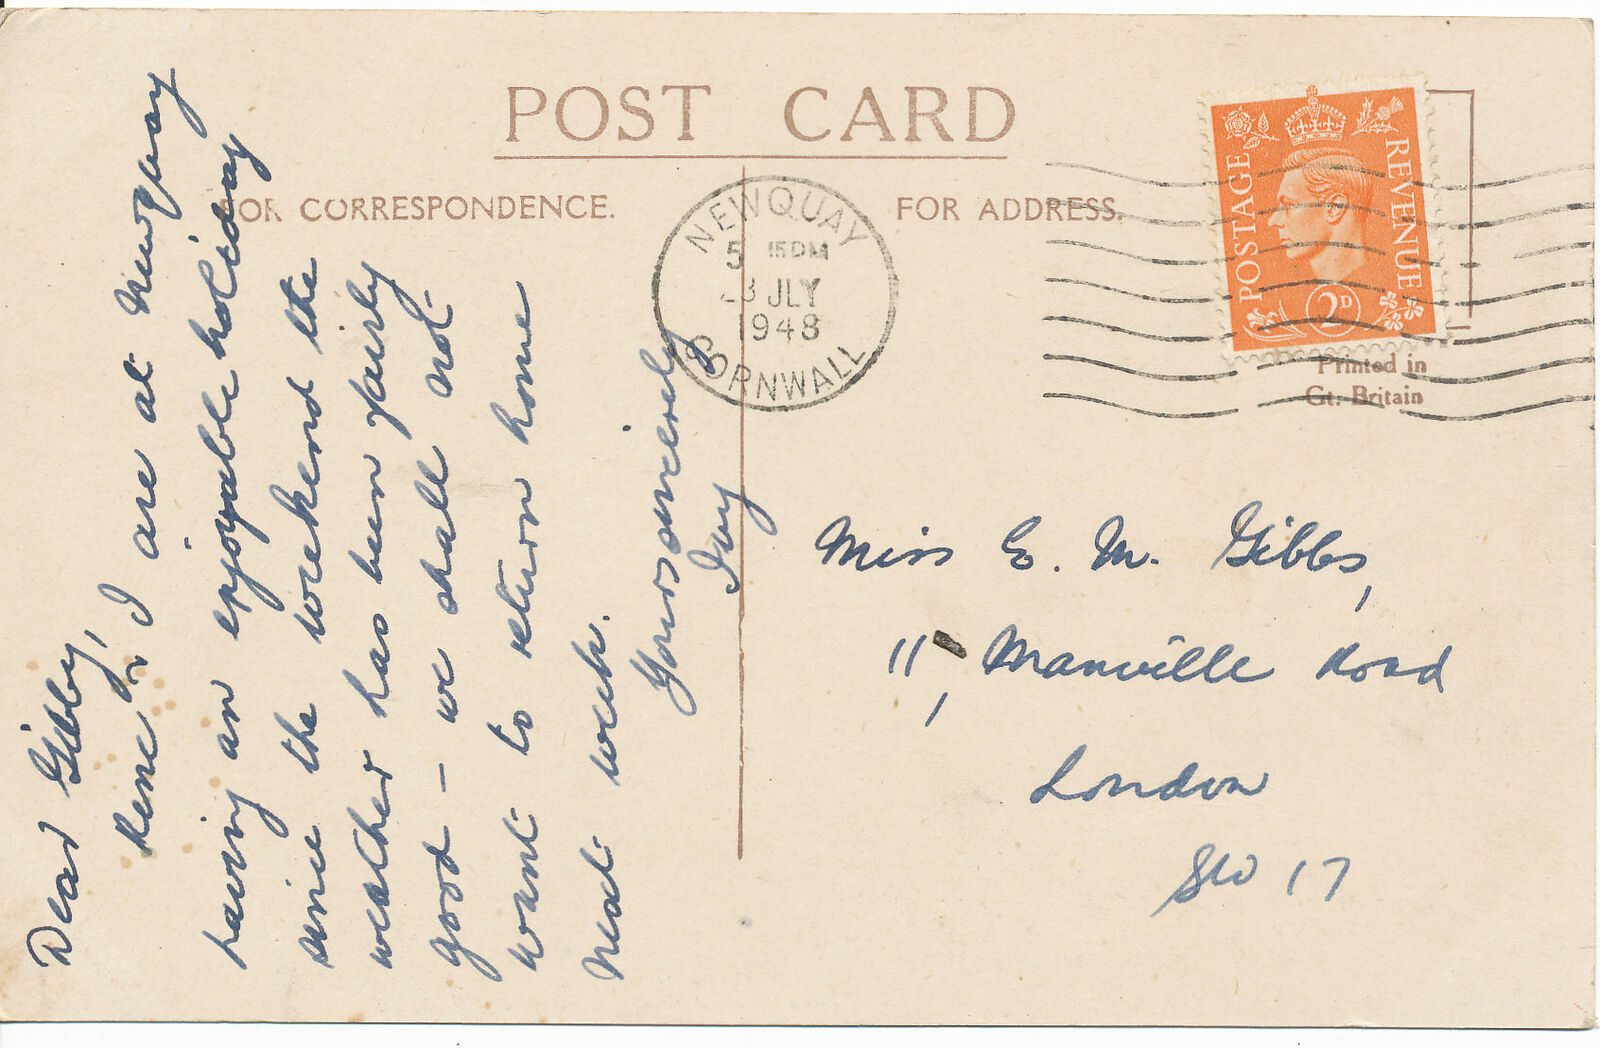 POST CARD
FOR CORRESPONDENCE.
FOR ADDRESS.
NEWQUAY
5 15 PM
JLY
1948
CORNWALL
POSTAGE
REVENUE
2D
Printed in
Gt. Britain
Dear Gibby,
Rene & I are at Newquay
having an enjoyable holiday
since the weekend the
weather has been fairly
good – we shall not
want to return home
next week.
Yours sincerely
Ivy
Miss E. M. Gibbs,
11, Manville Road
London
SW 17